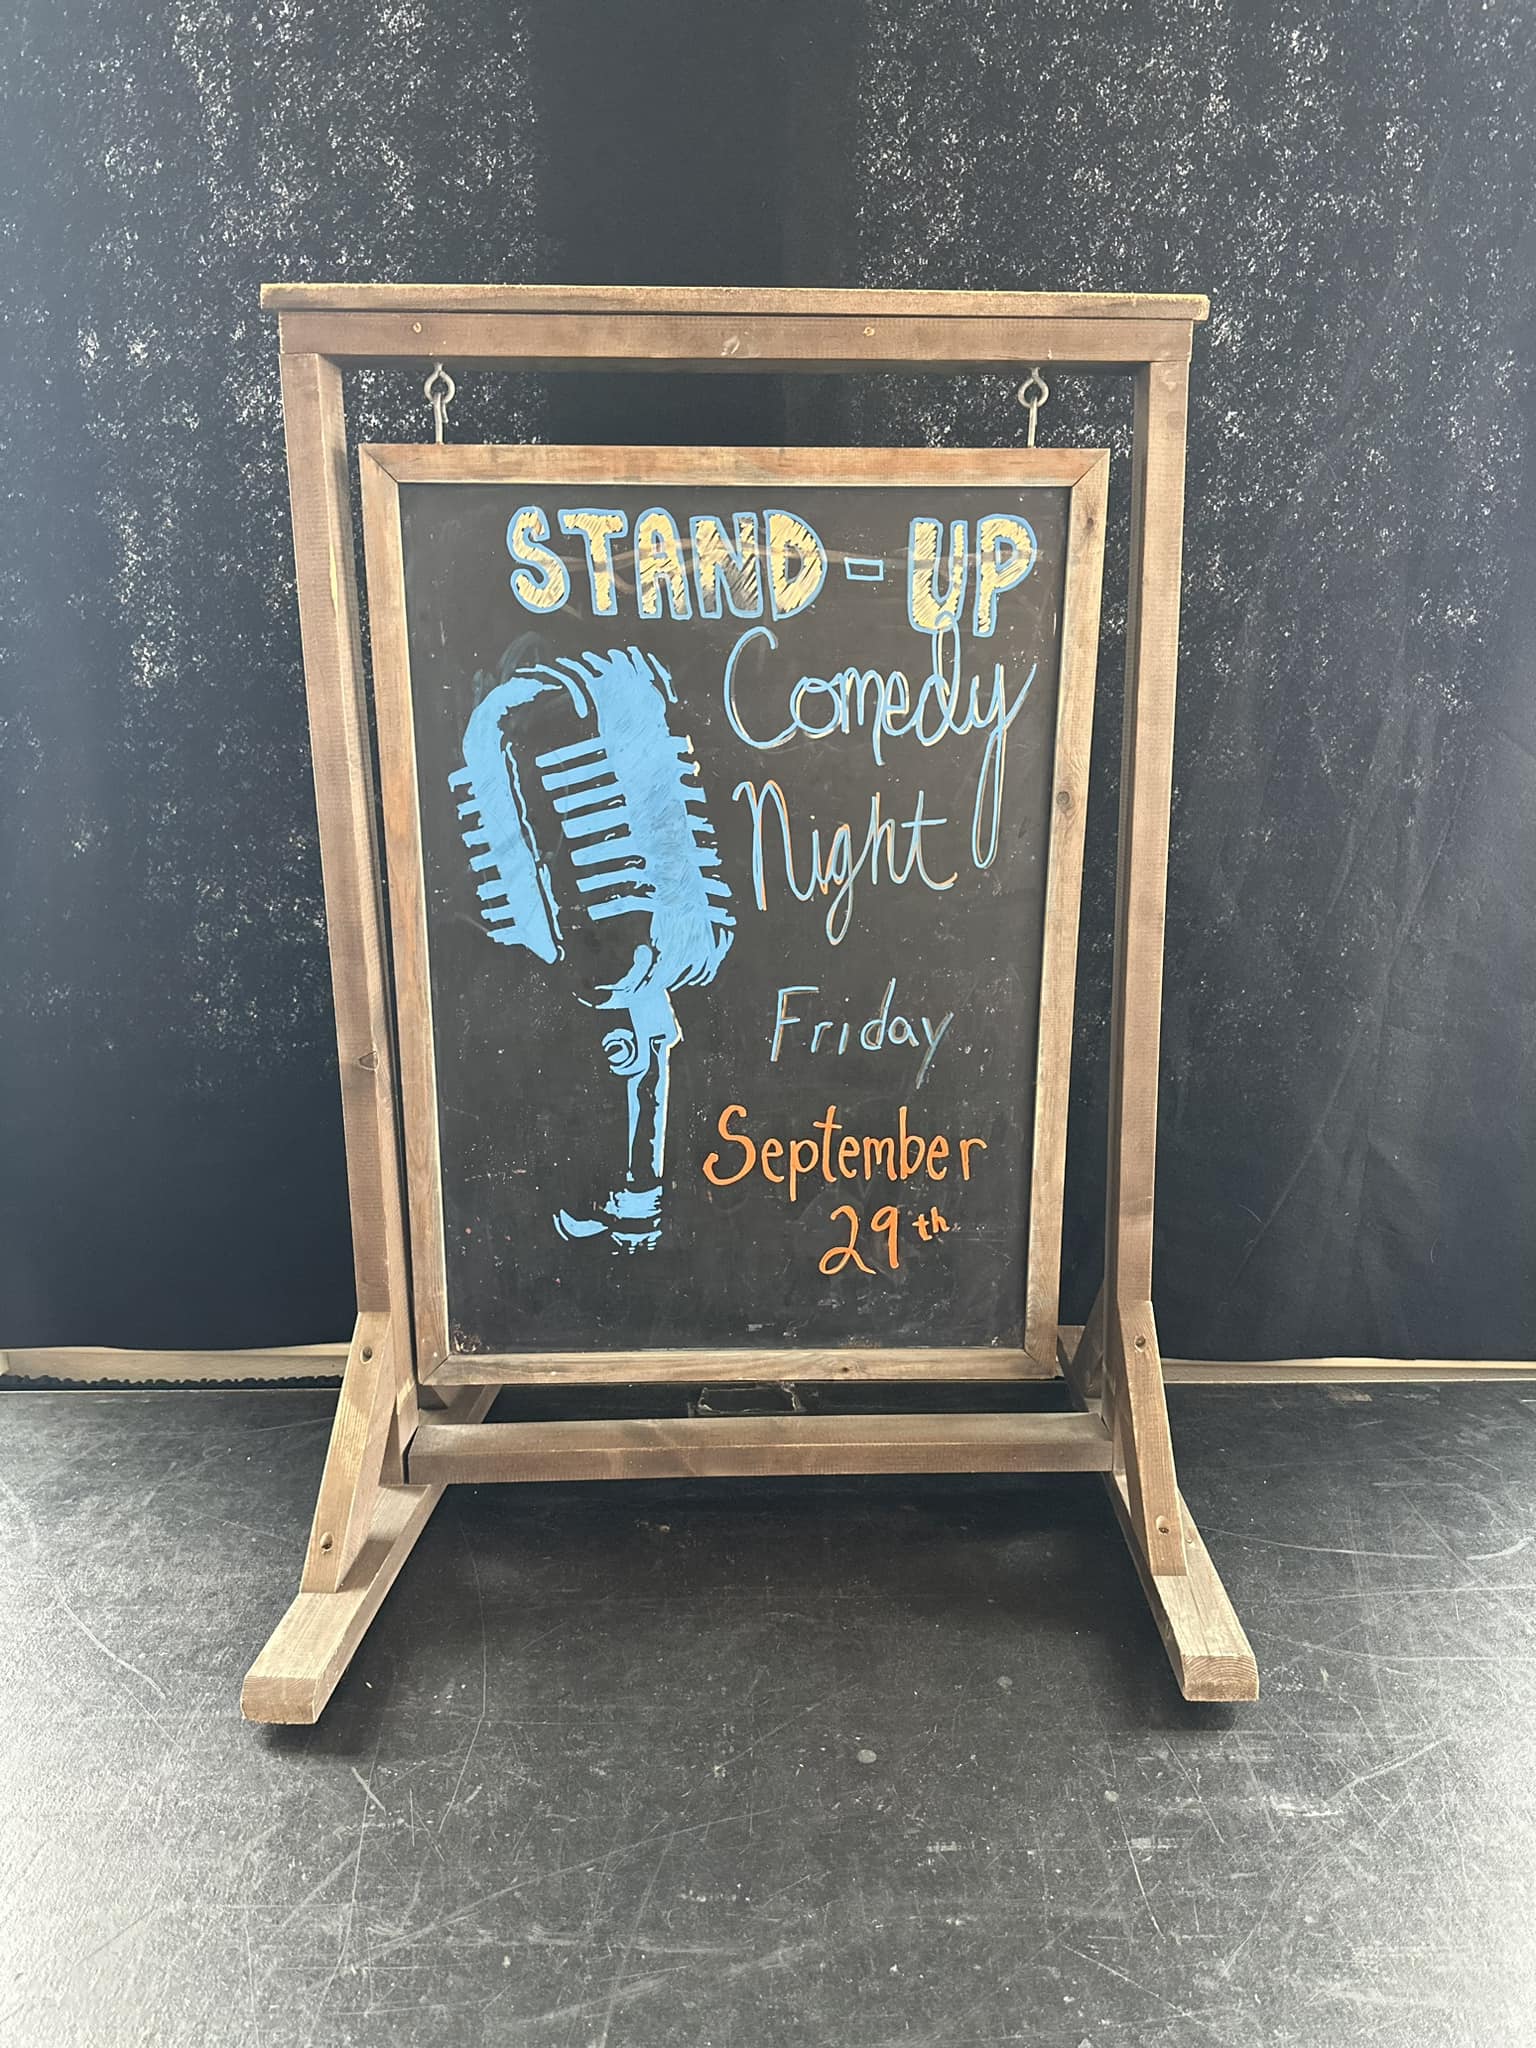 STAND-UP
Comedy
Night
Friday
September
29th